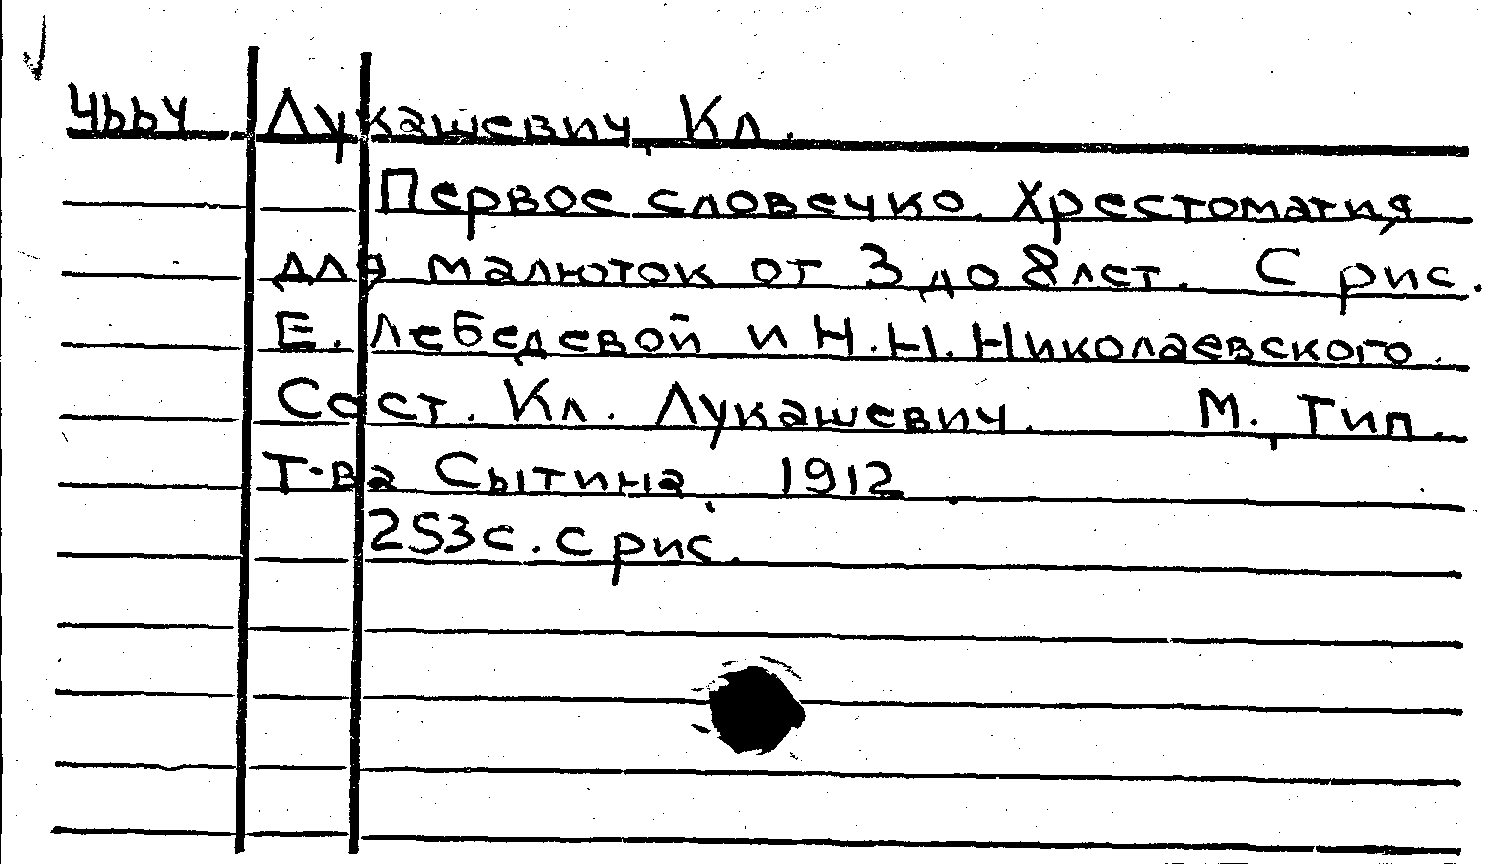 Лукашевич, Кл.
Первое словечко. Хрестоматия
для малюток от 3 до 8 лет. С рис.
Е. Лебедевой и Н.Н. Николаевского.
Сост. Кл. Лукашевич. М., Тип.
Т-ва Сытина, 1912.
253с. с рис.